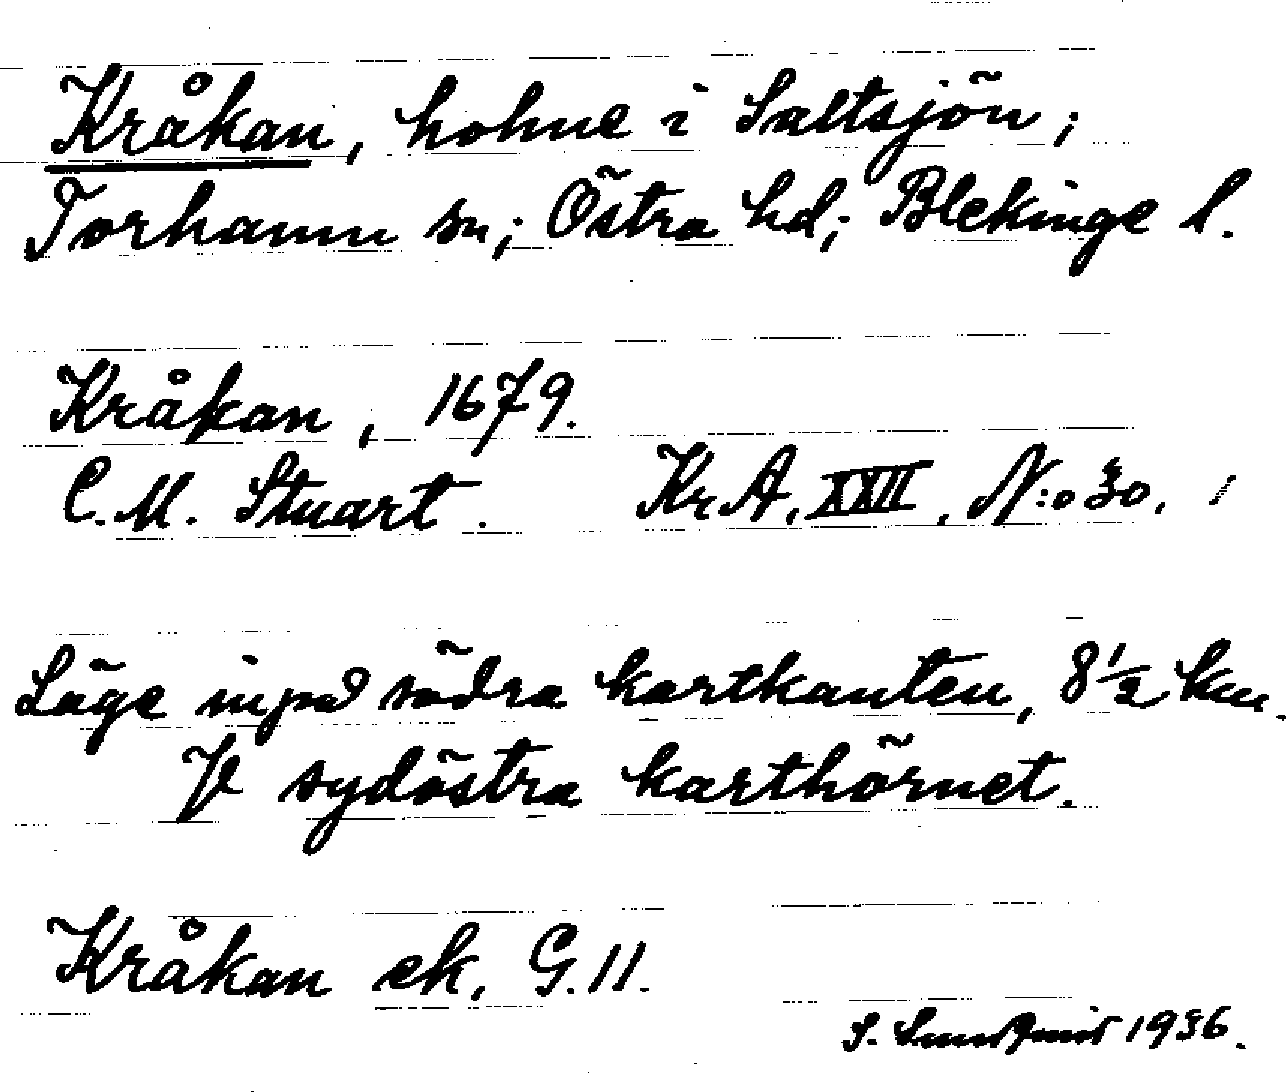 Kråkan, holme i Saltsjön;
Torhamn sn; Östra hd; Blekinge l.
Kråkan, 1679.
C. M. Stuart. Kr A, XXII, N:o 30.
Läge inpå södra kartkanten, 8 1/2 km.
V sydöstra karthörnet.
Kråkan ek, G. 11.
S. 1936.